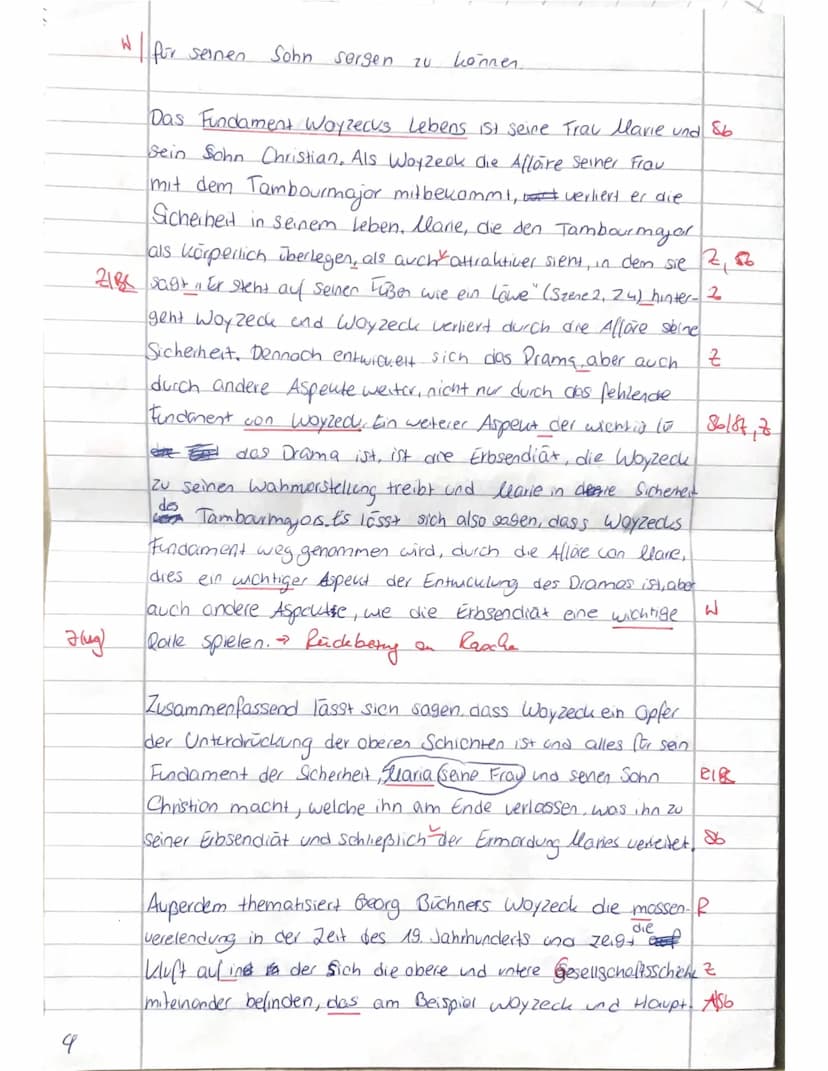 W | für seinen Sohn sorgen zu können.
Das Fundament Woyzecks Lebens ist seine Frau Marie und Sb
sein Sohn Christian. Als Woyzeck die Affäre seiner Frau
mit dem Tambourmajor mitbekommt, verliert er die
Sicherheit in seinem Leben. Marie, die den Tambourmajor
als körperlich überlegen, als auch attraktiver sieht, in dem sie Z, Sb
sagt „Er steht auf seinen Füßen wie ein Löwe" (Szene 2, Z 4) hinter- Z
geht Woyzeck und Woyzeck verliert durch die Affäre seine
Sicherheit. Dennoch entwickelt sich das Drama, aber auch Z
durch andere Aspekte weiter, nicht nur durch das fehlende
Fundment von Woyzeck. Ein weiterer Aspekt der wichtig
das Drama ist, ist die Erbsendiät, die Woyzeck
zu seinen Wahnvorstellung treibt und Marie in Sicherheit
des Tambourmajors. Es lässt sich also sagen, dass Woyzecks
Fundament weg genommen wird, durch die Affäre von Marie,
dies ein wichtiger Aspekt der Entwicklung des Dramas ist, aber
auch andere Aspekte, wie die Erbsendiät eine wichtige W
Rolle spielen. → Rückbezug an
Zusammenfassend lässt sich sagen, dass Woyzeck ein Opfer
der Unterdrückung der oberen Schichten ist und alles für sein
Fundament der Sicherheit, Maria (seine Frau) und seinen Sohn
Christion macht, welche ihn am Ende verlassen, was ihn zu
seiner Erbsendiät und schließlich der Ermordung Maries verleitet. Sb
Außerdem thematisiert Georg Büchners Woyzeck die massen- R
verelendung in der Zeit des 19. Jahrhunderts und zeigt die
Kluft auf in der sich die obere und untere Gesellschaftsschicht Z
miteinander befinden, das am Beispiel Woyzeck und Haupt-
4